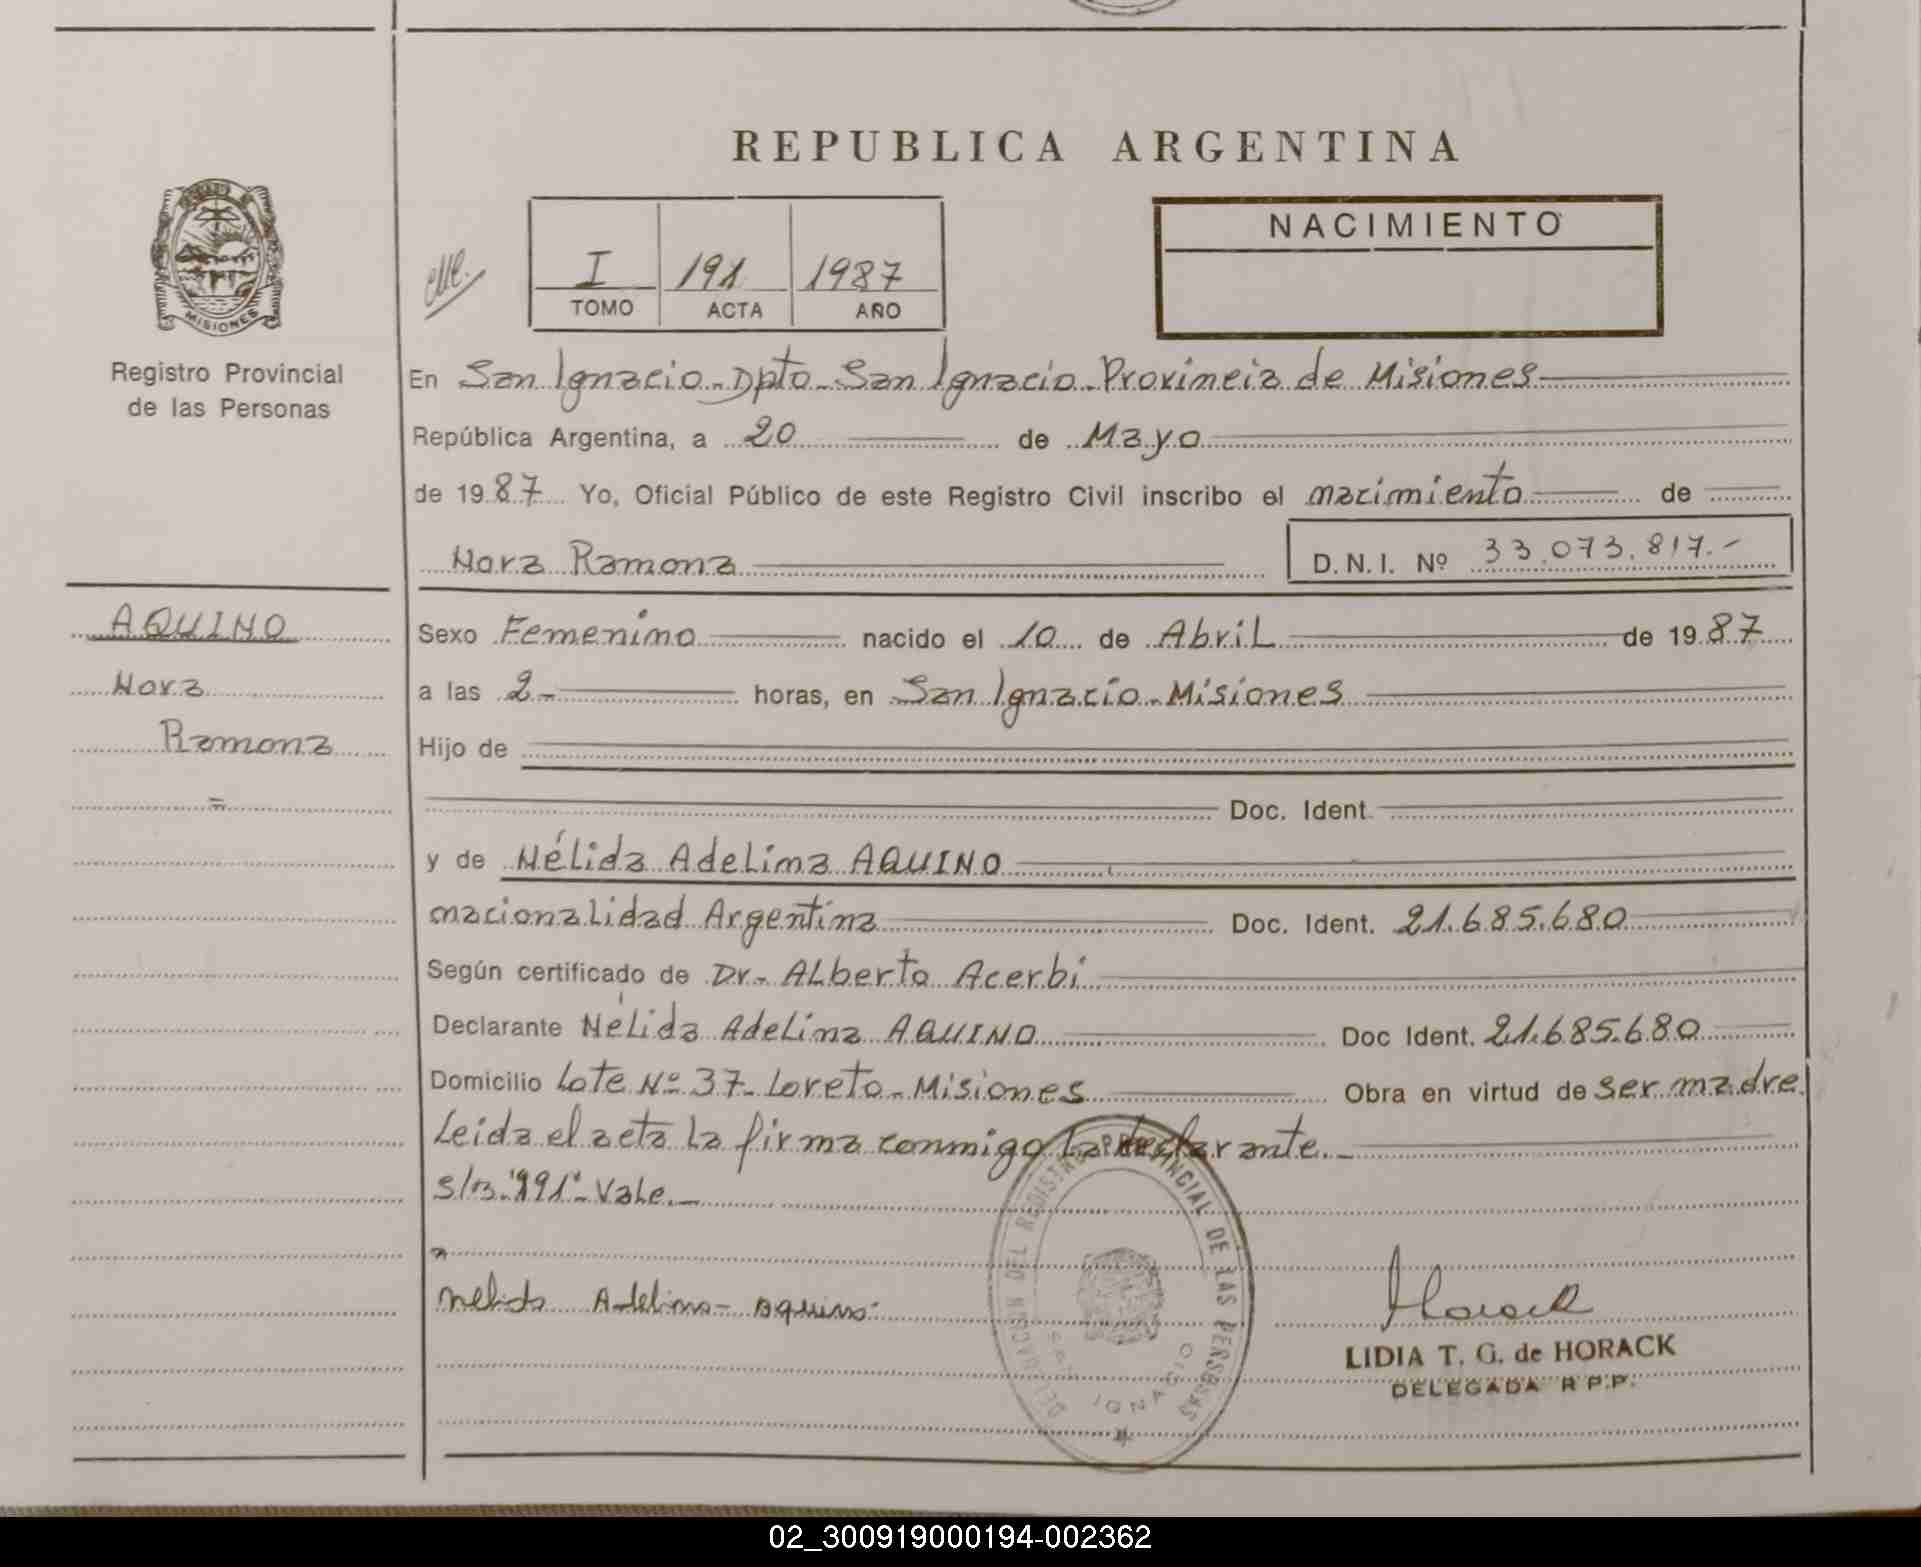 REPUBLICA ARGENTINA
MISIONES
Registro Provincial
de las Personas
I 191 1987
TOMO ACTA AÑO
NACIMIENTO
En San Ignacio - Dpto - San Ignacio - Provincia de Misiones
República Argentina, a 20 de Mayo
de 1987 Yo, Oficial Público de este Registro Civil inscribo el nacimiento de
Nora Ramona D.N.I. Nº 33.073.817.-
AQUINO
Nora
Ramona
=
Sexo Femenino nacido el 10 de Abril de 1987
a las 2- horas, en San Ignacio - Misiones
Hijo de
Doc. Ident.
y de Nélida Adelina AQUINO
nacionalidad Argentina Doc. Ident. 21.685.680
Según certificado de Dr- Alberto Acerbi
Declarante Nélida Adelina AQUINO Doc Ident. 21.685.680
Domicilio Lote Nº 37 - Loreto - Misiones Obra en virtud de ser madre
Leida el acta la firma conmigo la declarante.-
s/r. "191" - Vale.-
Nelida Adelina - Aquino
DELEGACION DEL REGISTRO PROVINCIAL DE LAS PERSONAS
SAN IGNACIO
Horack
LIDIA T. G. de HORACK
DELEGADA R P.P.
02_300919000194-002362